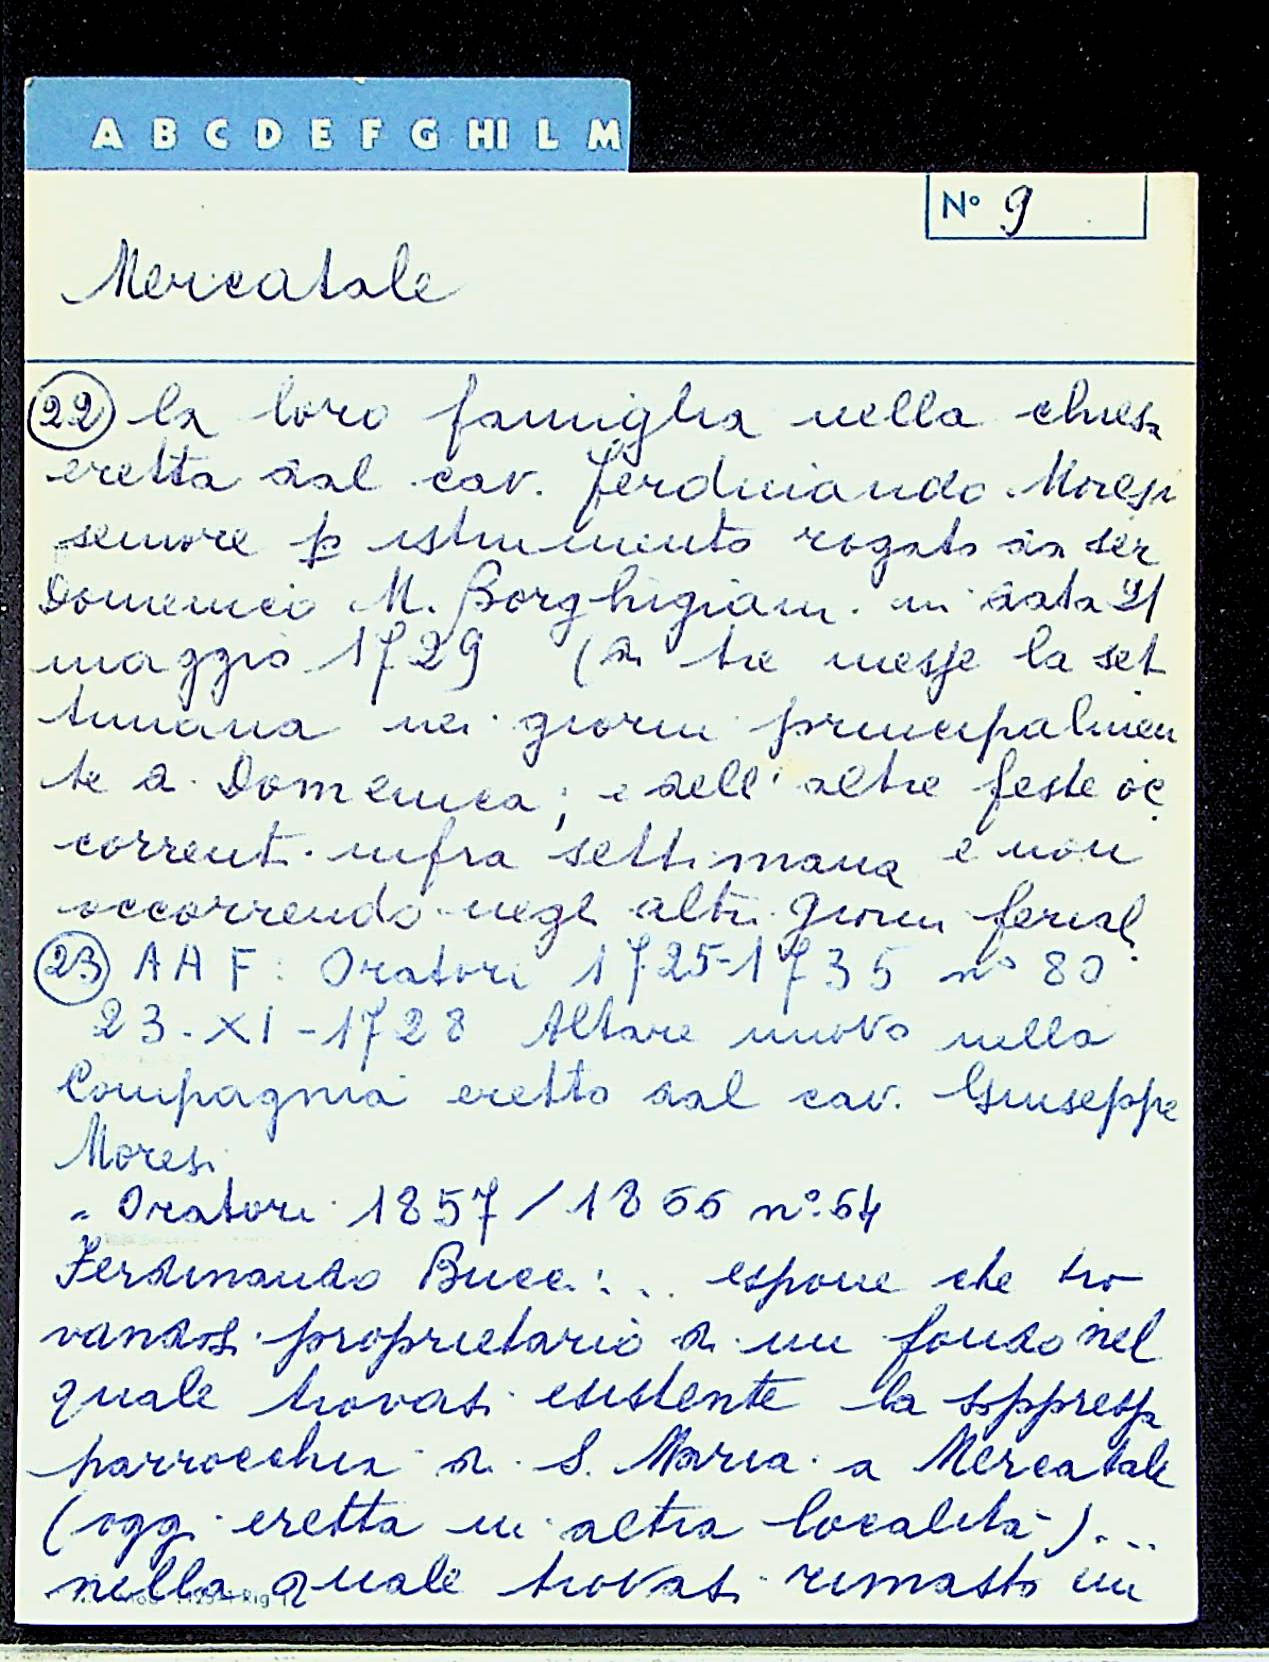 A B C D E F G HI L M
N° 9
Mercatale
22 la loro famiglia nella chiesa
eretta dal cav. Ferdinando Moresi
semore p istrumento rogato da ser
Domenico M. Borghigiani in data 21
maggio 1729 (di tre messe la set
timana nei giorni principalmen
te di Domenica, e dell' altre feste oc
correnti infra settimana e non
occorrendo negli altri giorni feriali
23 AAF: Oratori 1725-1735 n° 80
23-XI-1728 Altare nuovo nella
Compagnia eretto dal cav. Giuseppe
Moresi
" Oratori 1857/1866 n° 64
Ferdinando Bucci... espone che tro
vandosi proprietario di un fondo nel
quale trovasi esistente la soppressa
parrocchia di S. Maria a Mercatale
(oggi eretta in altra località)...
nella quale trovasi rimasto un